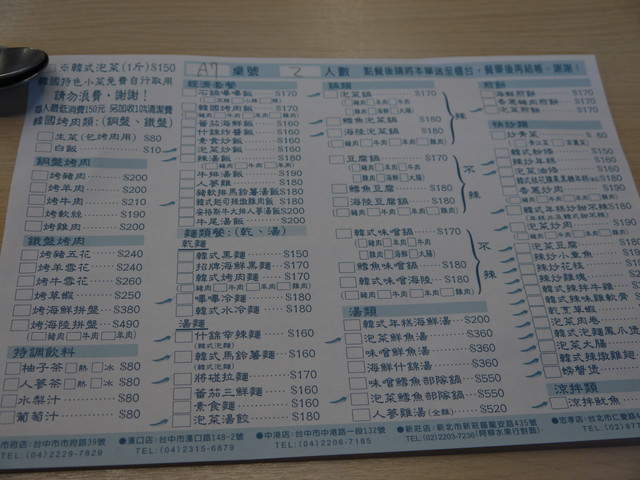 ※韓式泡菜(1斤)$150
韓國特色小菜免費自行取用
請勿浪費，謝謝！
每人最低消費150元 另加收10%清潔費
韓國烤肉類:(銅盤、鐵盤)
生菜(包烤肉用) $80
白飯 $10
銅盤烤肉
烤豬肉 $200
烤羊肉 $200
烤牛肉 $210
烤軟絲 $190
烤雞肉 $200
鐵盤烤肉
烤豬五花 $240
烤羊雪花 $240
烤牛雪花 $260
烤草蝦 $250
烤海鮮拼盤 $380
烤海陸拼盤 $490
(豬肉 牛肉 羊肉)
特調飲料
柚子茶 熱 冰 $80
人參茶 熱 冰 $80
水梨汁 $80
葡萄汁 $80
A7 桌號 2 人數 點餐後請將本單送至櫃台，餐畢後再結帳，謝謝！
經濟套餐
石鍋嗶嗶飯 $170
韓國烤肉飯 $170
番茄海鮮飯 $160
什錦炒醬飯 $160
素食炒飯 $160
泡菜炒飯 $160
辣湯飯 $180
牛排湯飯 $190
人參雞 $180
豬軟排馬鈴薯湯飯 $180
牛尾湯飯 $200
麵類餐:(乾、湯)
乾麵
韓式黑麵 $150
招牌海鮮黑麵 $170
韓式烤肉麵 $170
(豬肉 牛肉 羊肉 雞肉)
嗶嗶冷麵 $180
韓式水冷麵 $180
湯麵
什錦辛辣麵 $160
(韓式泡麵)
韓式馬鈴薯麵 $160
(韓式泡麵)
將碰拉麵 $170
番茄三鮮麵 $160
素食麵 $160
泡菜湯餃 $180
鍋類
泡菜鍋 $170
鱈魚泡菜鍋 $180
海陸泡菜鍋 $180
辣
豆腐鍋 $170
鱈魚豆腐 $180
海陸豆腐鍋 $180
不辣
韓式味噌鍋 $170
鱈魚味噌鍋 $180
韓式味噌海陸 $180
(豬肉 牛肉 羊肉 雞肉)
不辣
湯類
韓式年糕海鮮湯 $200
泡菜鮮魚湯 $360
味噌鮮魚湯 $360
海鮮什錦湯 $360
味噌鱈魚部隊鍋 $550
泡菜鱈魚部隊鍋 $550
人參雞湯(全雞) $520
煎餅
海鮮煎餅 $170
泡菜海鮮煎餅
快炒類
炒青菜 $ 80
韓式炒粉條 $150
辣炒年糕 $160
泡菜油條 $160
香蔥炒肉 $190
泡菜炒肉 $190
泡菜豆腐
辣炒魷魚
辣炒花枝
辣炒雞塊
韓式辣拌牛雜
韓式辣味雞軟骨
乾烹草蝦
泡菜肉卷
泡菜大腸
韓式辣燉雞翅
螃蟹煲
涼拌類
涼拌魷魚
市府店:台中市市府路39號
TEL:(04)2229-7829
●漢口店:台中市漢口路148-2號
TEL:(04)2315-6879
●中港店:台中市中港路一段132號
TEL:(04)2206-7185
●新莊店:新北市新莊區龍安路435號
TEL:(02)2203-7230(阿穆水果行對面)
●忠孝店:台北市仁愛路
TEL:(02)877